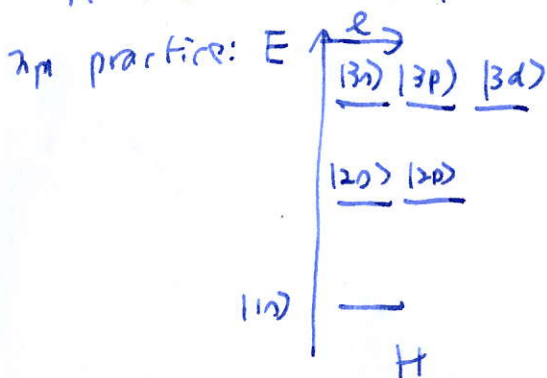 in practice: E ℓ
|3s⟩ |3p⟩ |3d⟩
|2s⟩ |2p⟩
|1s⟩
H